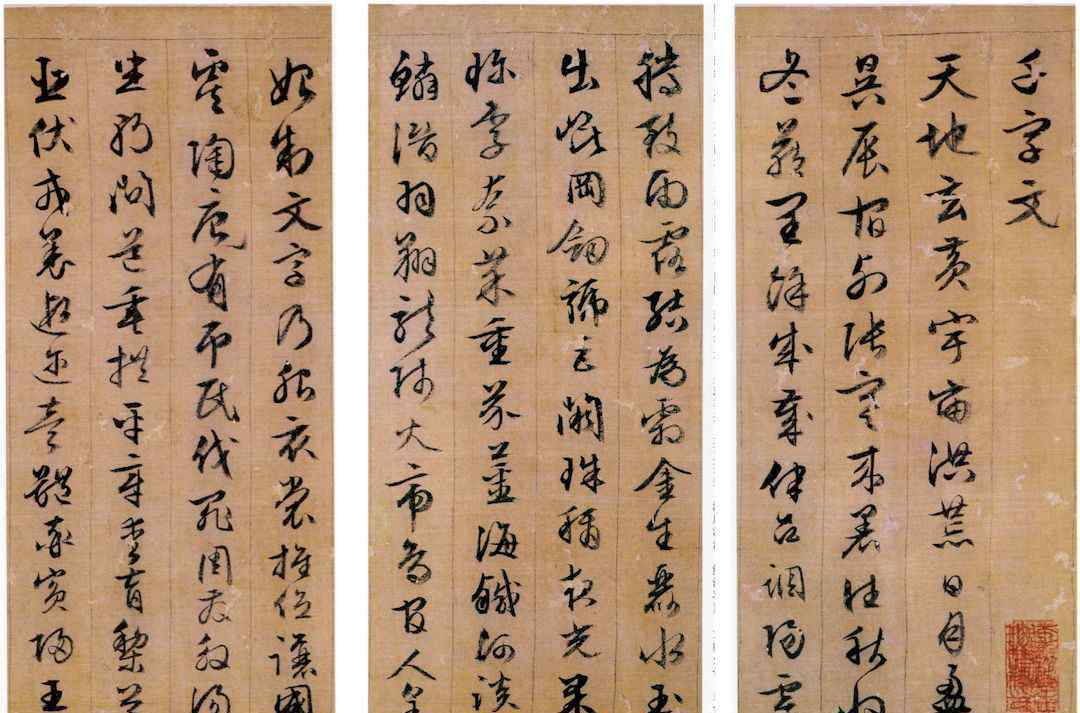 千字文
天地玄黃宇宙洪荒日月盈
昃辰宿列張寒來暑往秋收
冬藏閏餘成歲律呂調陽雲
騰致雨露結為霜金生麗水玉
出崑岡劍號巨闕珠稱夜光果
珍李柰菜重芥薑海鹹河淡
鱗潛羽翔龍師火帝鳥官人皇
始制文字乃服衣裳推位讓國
虞陶唐有弔民伐罪周發殷湯
坐朝問道垂拱平章愛育黎首
臣伏戎羌遐邇壹體率賓歸王